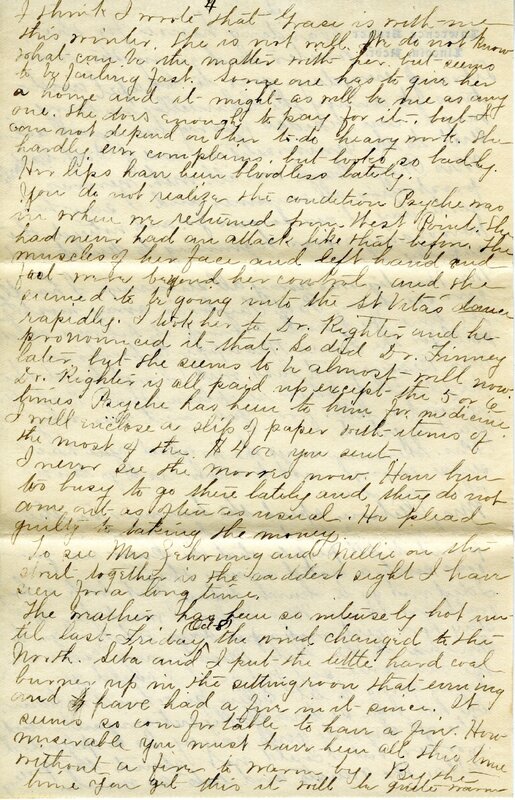 4
I think I wrote that Grace is with me
this winter. She is not well. We do not know
what can be the matter with her but seems
to be failing fast. Some one has to give her
a home and it might as well be me as any
one. She does enough to pay for it, but I
can not depend on her to do heavy work. She
hardly ever complains, but looks so badly.
Her lips have been bloodless lately.
You do not realize the condition Psyche was
in when we returned from West Point. She
had never had an attack like that before. The
muscles of her face and left hand and
foot were beyond her control, and she
seemed to be going into the St Vitas dance
rapidly. I took her to Dr. Righter and he
pronounced it that. So did Dr. Finney
later, but she seems to be almost well now.
Dr. Righter is all paid up except the 5 or 6
times Psyche has been to him for medicine.
I will inclose a slip of paper with items of
the most of the $400 you sent.
I never see the Morris now. Have been
too busy to go there lately and they do not
come out as often as usual. He plead
guilty to taking the money.
To see Mrs Gehrung and Nellie on the
street together is the saddest sight I have
seen for a long time.
The weather has been so intensely hot un-
til last Friday Oct 8, the wind changed to the
North. Seba and I put the little hard coal
burner up in the sitting room that evening
and have had a fire in it since. It
seems so comfortable to have a fire. How
miserable you must have been all this time
without a fire to warm by. By the
time you get this it will be quite warm